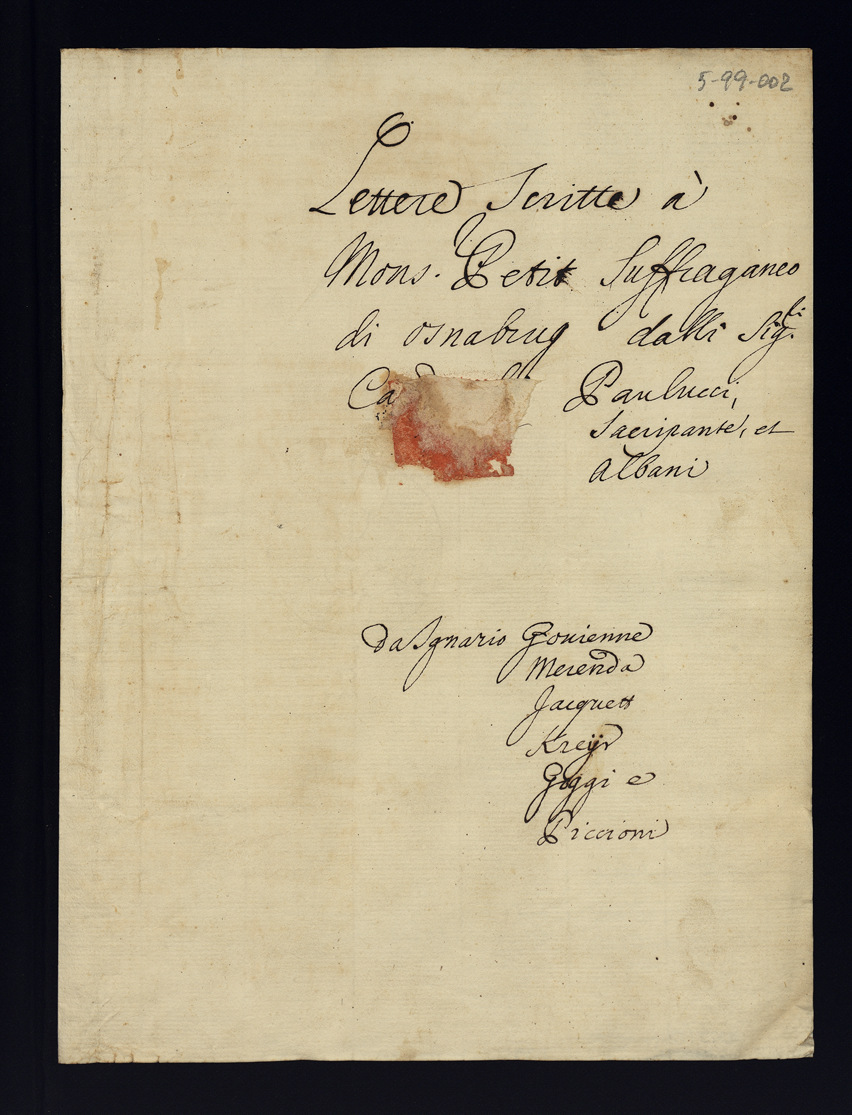 5-99-002
Lettere Scritte à
Mons. Petit Suffraganeo
di Osnabrug dalli Sig.ri
Paulucci,
Sacripante, et
Albani
Da Ignazio
Merenda
Jacquett
Kreijr
Goggi e
Piccioni